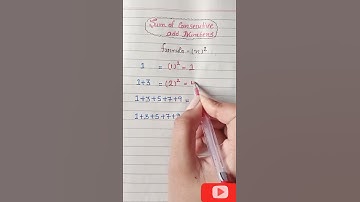 Sum of Consecutive
odd Numbers
formula = (n)²
1 = (1)² = 1
1+3 = (2)² = 4
1+3+5+7+9 =
1+3+5+7+9